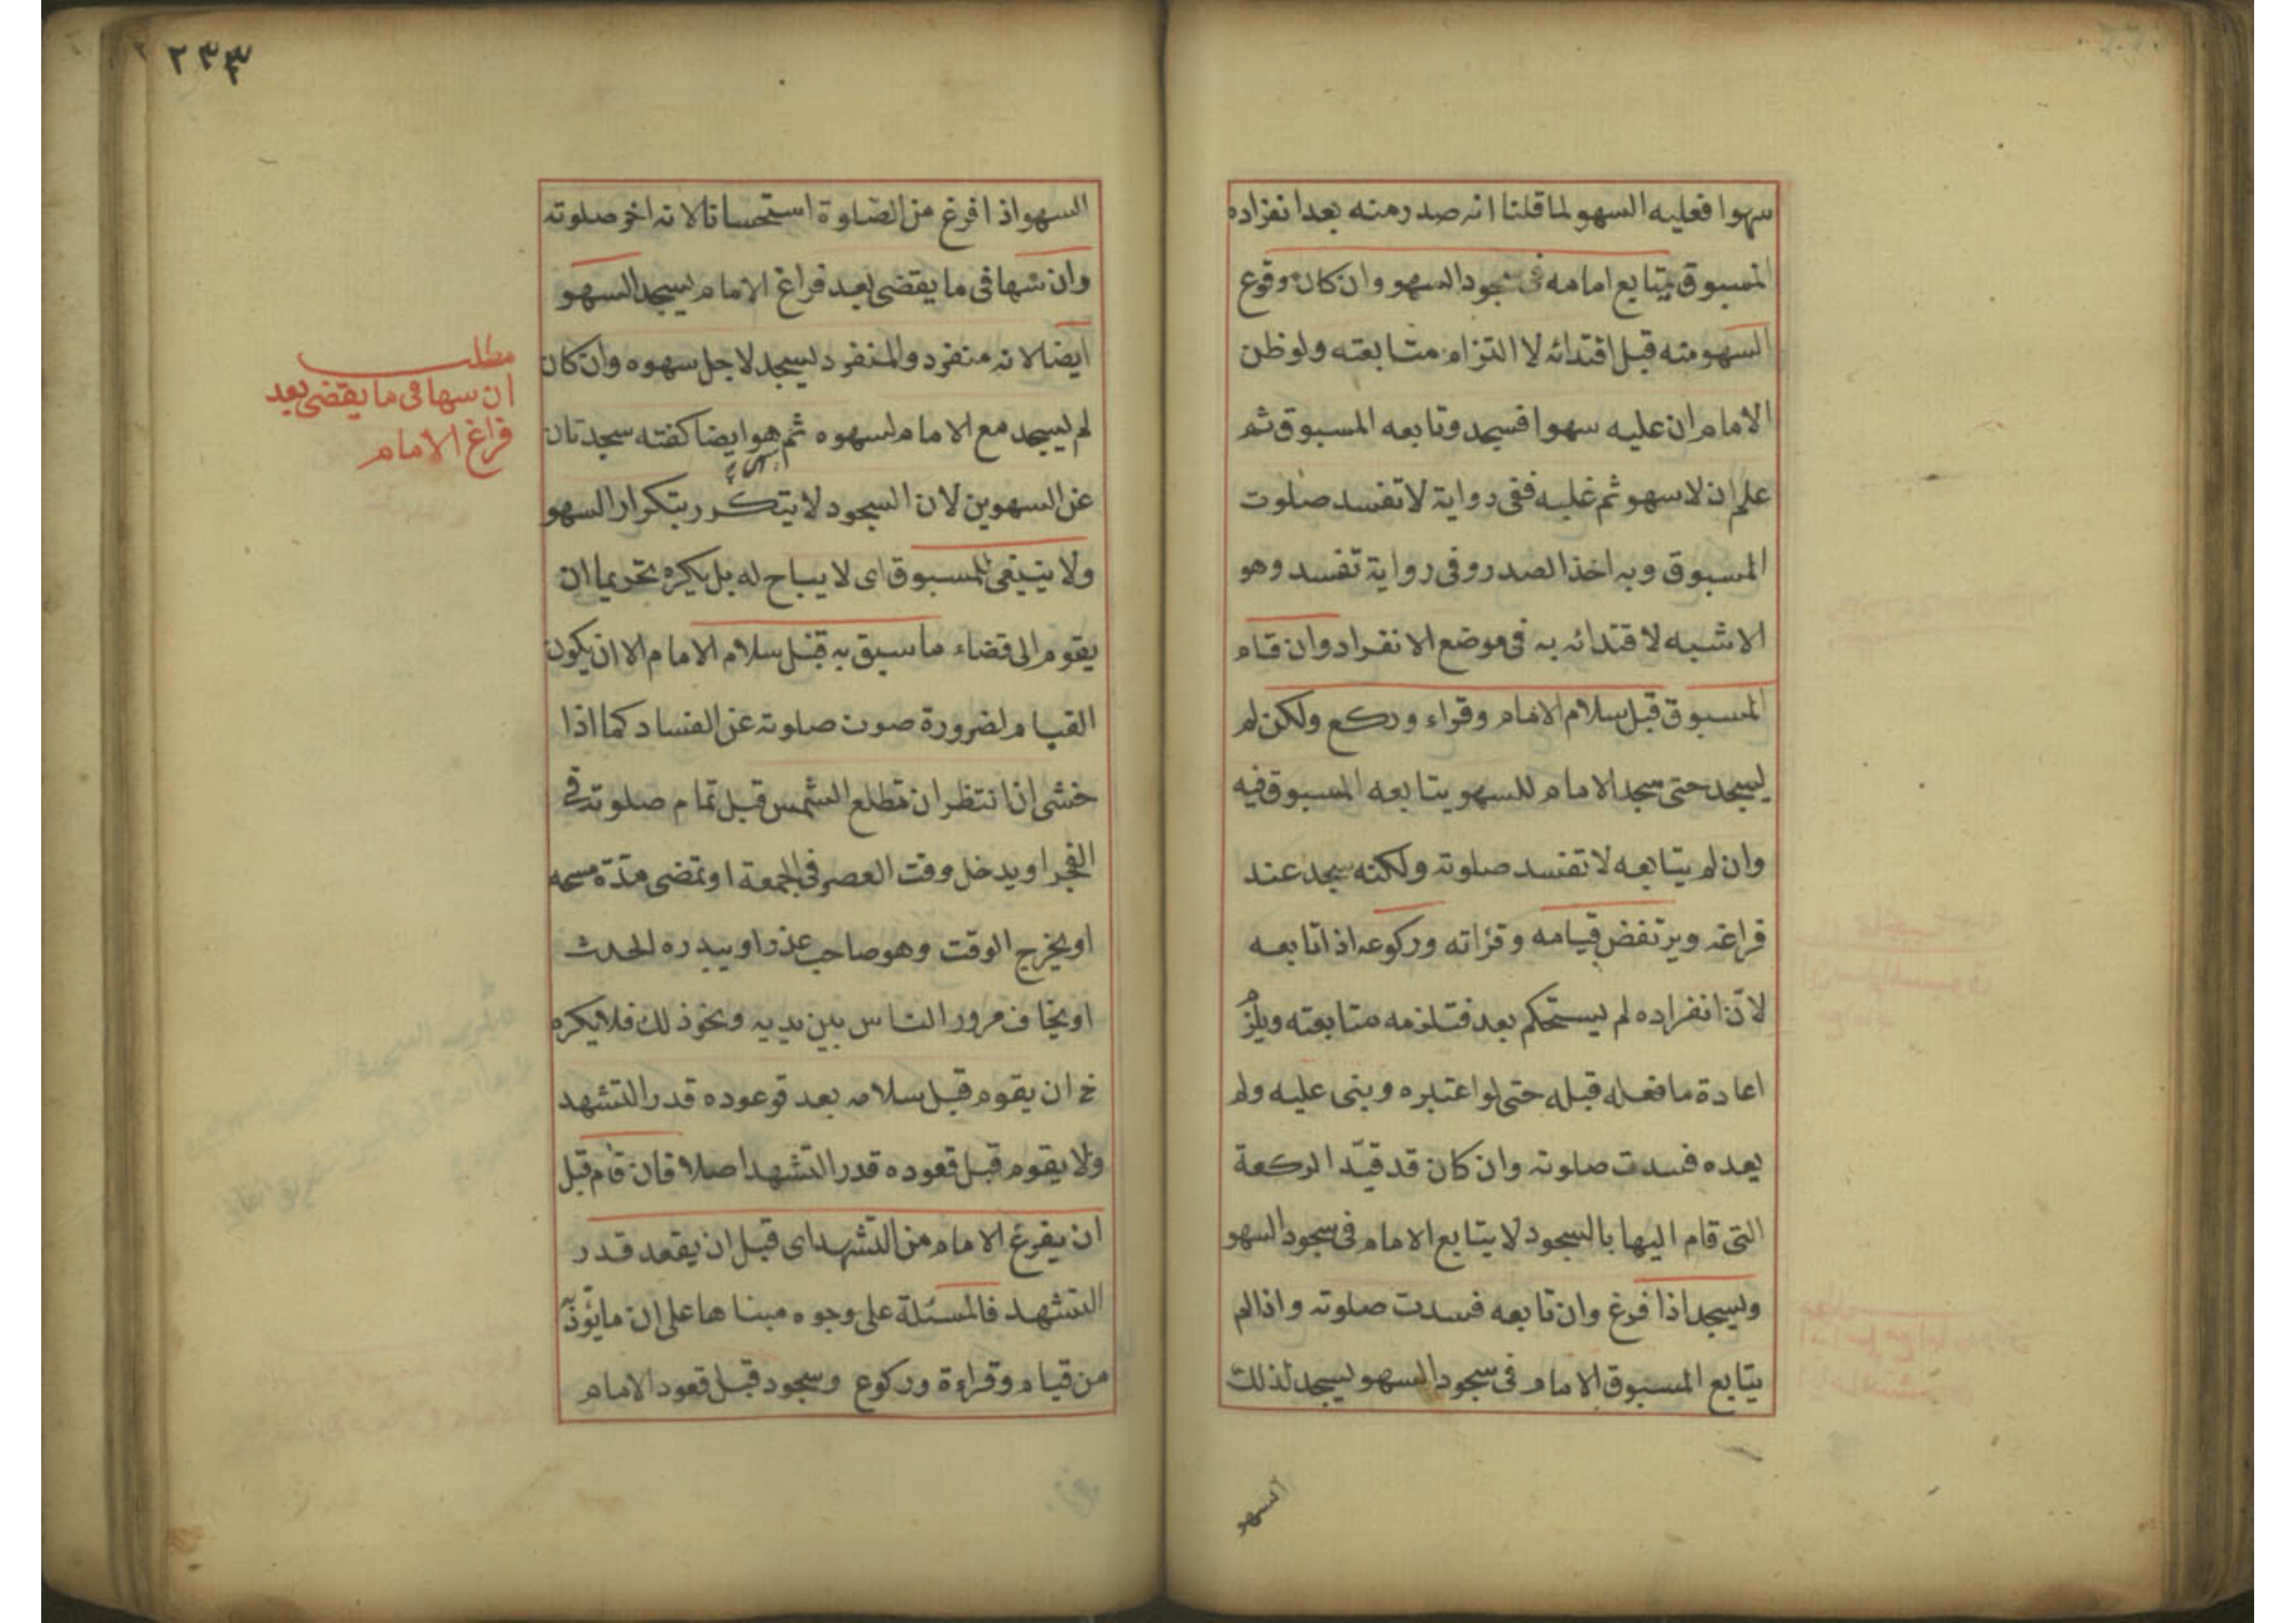 سهوا فعليه السهو لما قلنا انه صدر منه بعد انفراده
المسبوق يتابع امامه فى سجود السهو وان كان وقوع
السهو منه قبل اقتدائه لا التزام متابعته ولو ظن
الامام ان عليه سهوا فسجد وتابعه المسبوق ثم
علم ان لا سهو ثم عليه ففى رواية لا تفسد صلوت
المسبوق وبه اخذ الصدر وفى رواية تفسد وهو
الاشبه لاقتدائه به فى موضع الانفراد وان قام
المسبوق قبل سلام الامام وقراء وركع ولكن لم
يسجد حتى سجد الامام للسهو يتابعه المسبوق فيه
وان لم يتابعه لا تفسد صلوته ولكنه سجد عند
فراغه ويرتفض قيامه وقرأته وركوعه اذا تابعه
لانّ انفراده لم يستحكم بعد فتلزمه متابعته ويلزم
اعادة ما فعله قبله حتى لو اعتبره وبنى عليه ولم
يعده فسدت صلوته وان كان قد قيّد الركعة
التى قام اليها بالسجود لا يتابع الامام فى سجود السهو
ويسجد اذا فرغ وان تابعه فسدت صلوته واذا لم
يتابع المسبوق الامام فى سجود السهو يسجد لذلك
السهو
٢٣٣
السهو اذا فرغ من الصّلوة استحسانا لانه اخر صلوته
وان سها فى ما يقضى بعد فراغ الامام يسجد السهو
ايضا لانه منفرد والمنفرد يسجد لاجل سهوه وان كان
لم يسجد مع الامام لسهوه ثم هو ايضا كفته سجدتان
عن السهوين لان السجود لا يتكرر بتكرار السهو
ولا ينبغى للمسبوق اى لا يباح له بل يكره تحريما ان
يقوم الى قضاء ما سبق به قبل سلام الامام الا ان يكون
القيام لضرورة صون صلوته عن الفساد كما اذا
خشى ان انتظر ان تطلع الشمس قبل تمام صلوته فى
الفجر او يدخل وقت العصر فى الجمعة او تمضى مدّة مسحه
او يخرج الوقت وهو صاحب عذر او يبدره الحدث
او يخاف مرور الناس بين يديه ونحو ذلك فلا يكره
ح ان يقوم قبل سلامه بعد قوعوده قدر التشهد
ولا يقوم قبل قعوده قدر التشهد اصلا فان قام قبل
ان يفرغ الامام من التشهد اى قبل ان يقعد قدر
التشهد فالمسئلة على وجوه مبناها على ان ما يؤدّ
من قيام وقراءة وركوع وسجود قبل قعود الامام
مطلب
ان سها فى ما يقضى بعد
فراغ الامام